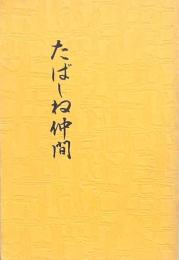 たばしね仲間